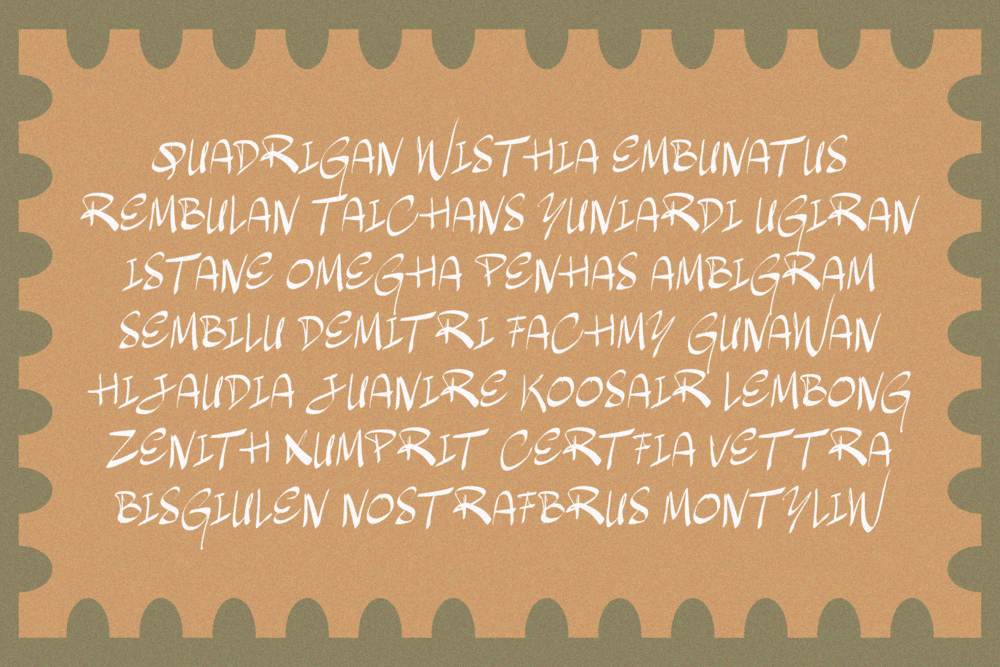 QUADRIGAN WISTHIA EMBUNATUS
REMBULAN TAICHANS YUNIARDI UGIRAN
ISTANE OMEGHA PENHAS AMBIGRAM
SEMBILU DEMITRI FACHMY GUNAWAN
HIJAUDIA JUANIRE KOOSAIR LEMBONG
ZENITH XUMPRIT CERTFIA VETTRA
BISGIULEN NOSTRAFBRUS MONTYLIW